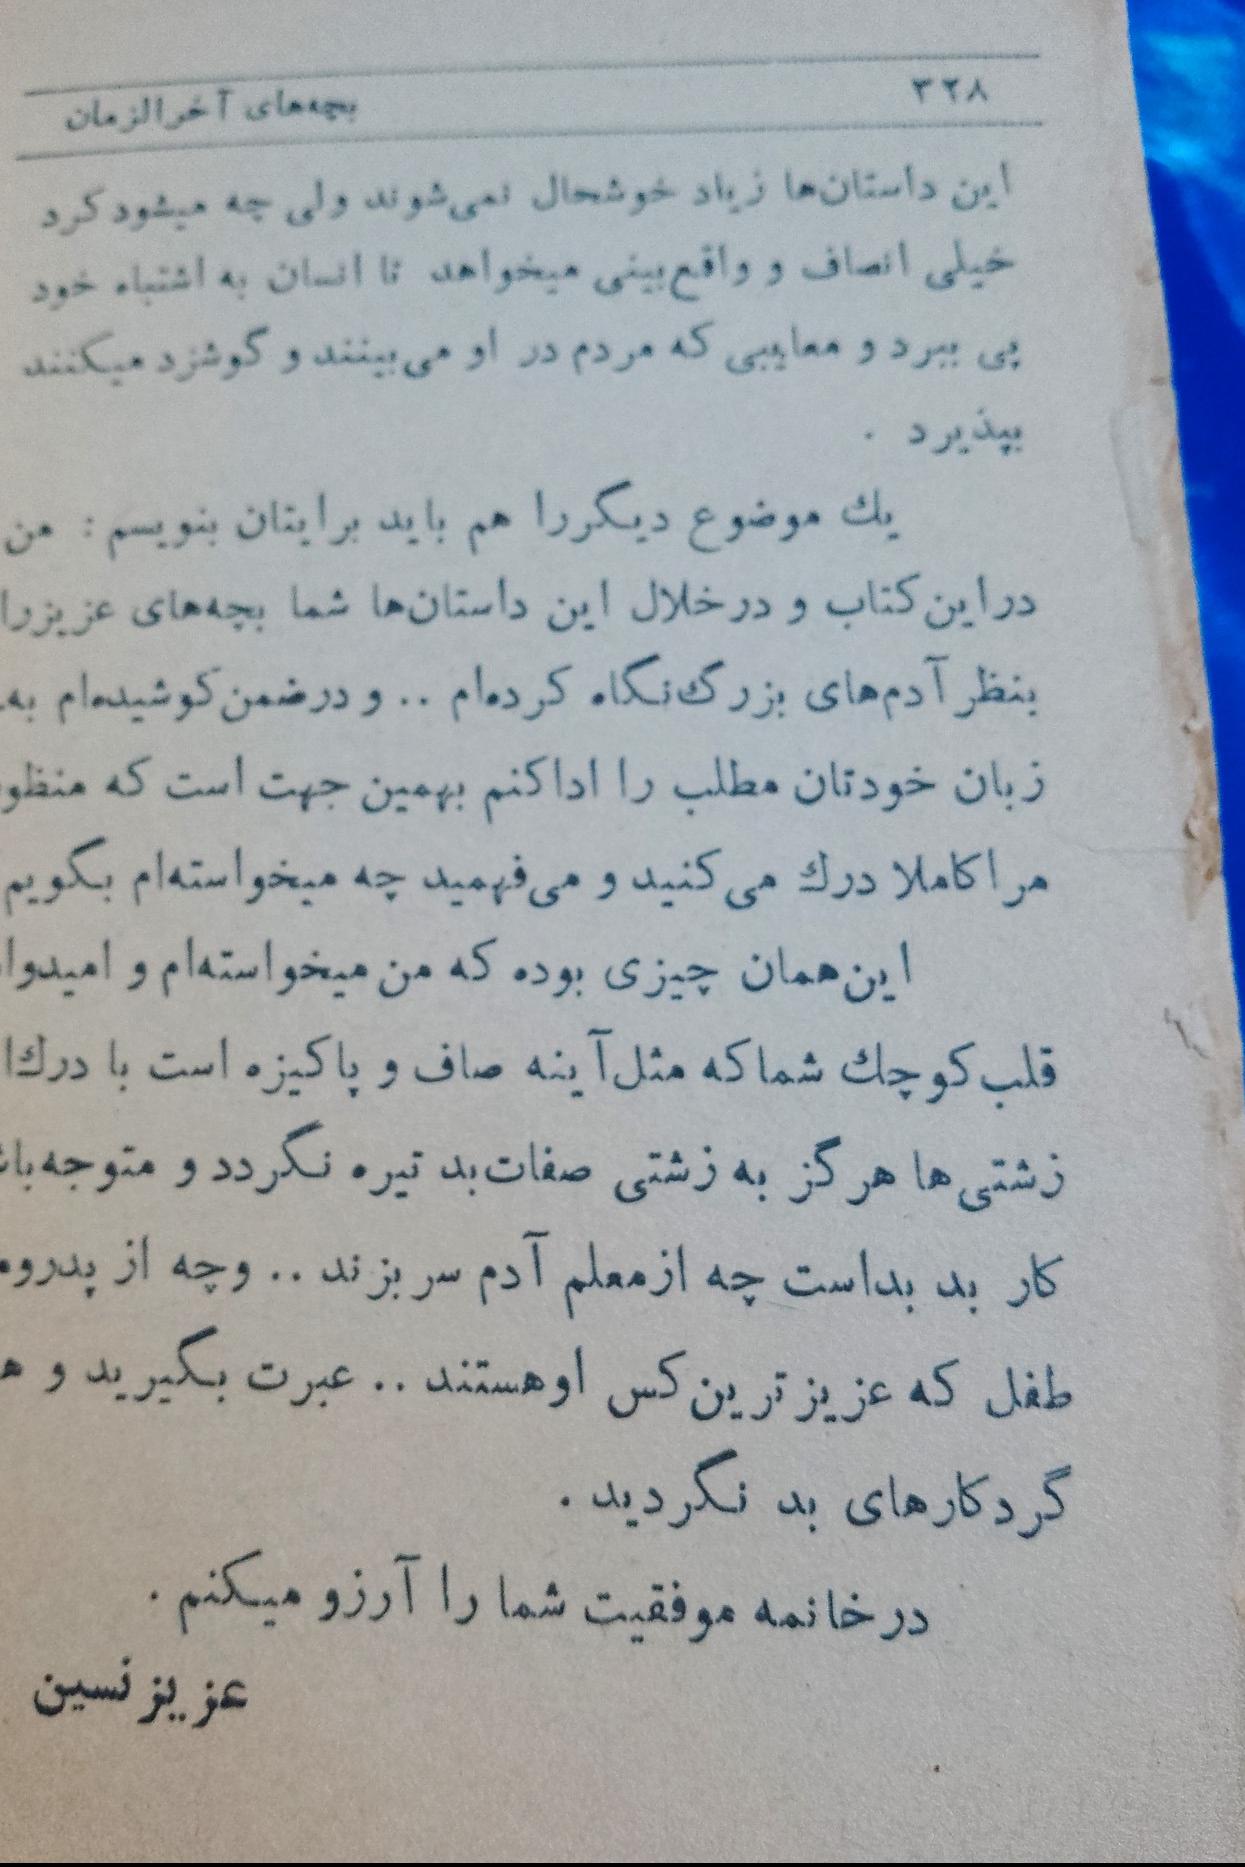 ۳۲۸ بچه‌های آخرالزمان
این داستان‌ها زیاد خوشحال نمی‌شوند ولی چه میشود کرد
خیلی انصاف و واقع‌بینی میخواهد تا انسان به اشتباه خود
پی ببرد و معایبی که مردم در او می‌بینند و گوشزد میکنند
بپذیرد .
یك موضوع دیگررا هم باید برایتان بنویسم : من
دراین کتاب و درخلال این داستان‌ها شما بچه‌های عزیزرا
بنظر آدم‌های بزرگ نگاه کرده‌ام .. و درضمن کوشیده‌ام به
زبان خودتان مطلب را اداکنم بهمین جهت است که
مرا کاملا درك می‌کنید و می‌فهمید چه میخواسته‌ام بگویم
این‌همان چیزی بوده که من میخواسته‌ام و
قلب کوچك شماکه مثل آینه صاف و پاکیزه است با
زشتی‌ها هرگز به زشتی صفات بد تیره نگردد و
کار بد بداست چه ازمعلم آدم سربزند .. وچه از
طفل که عزیزترین کس اوهستند .. عبرت بگیرید و
گردکارهای بد نگردید .
درخاتمه موفقیت شما را آرزو میکنم .
عزیز نسین